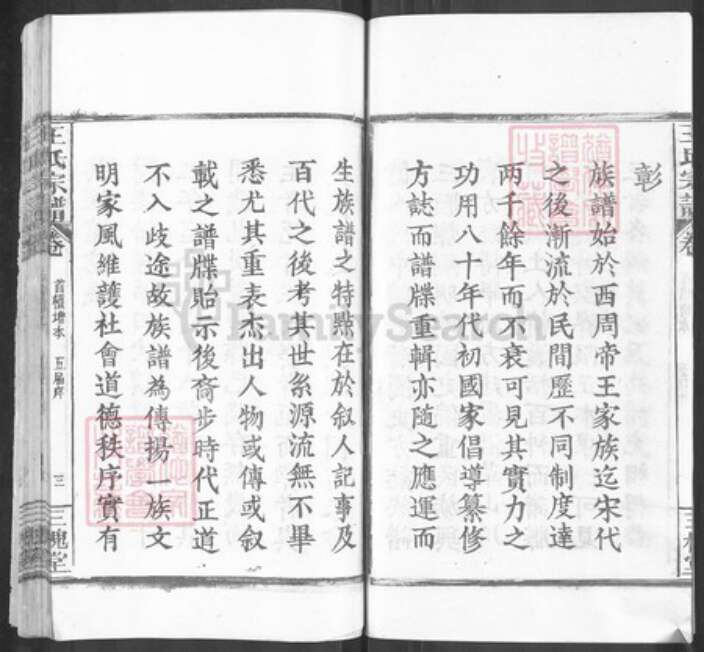 彰
族譜始於西周帝王家族迄宋代
之後漸流於民間歷不同制度達
兩千餘年而不衰可見其實力之
功用八十年代初國家倡導纂修
方誌而譜牒重輯亦隨之應運而
生族譜之特點在於叙人記事及
百代之後考其世系源流無不畢
悉尤其重表杰出人物或傳或叙
載之譜牒貽示後裔步時代正道
不入歧途故族譜為傳揚一族文
明家風維護社會道德秩序實有
王氏宗譜
卷
首續增本
五屆序
三
三槐堂
FamilySearch